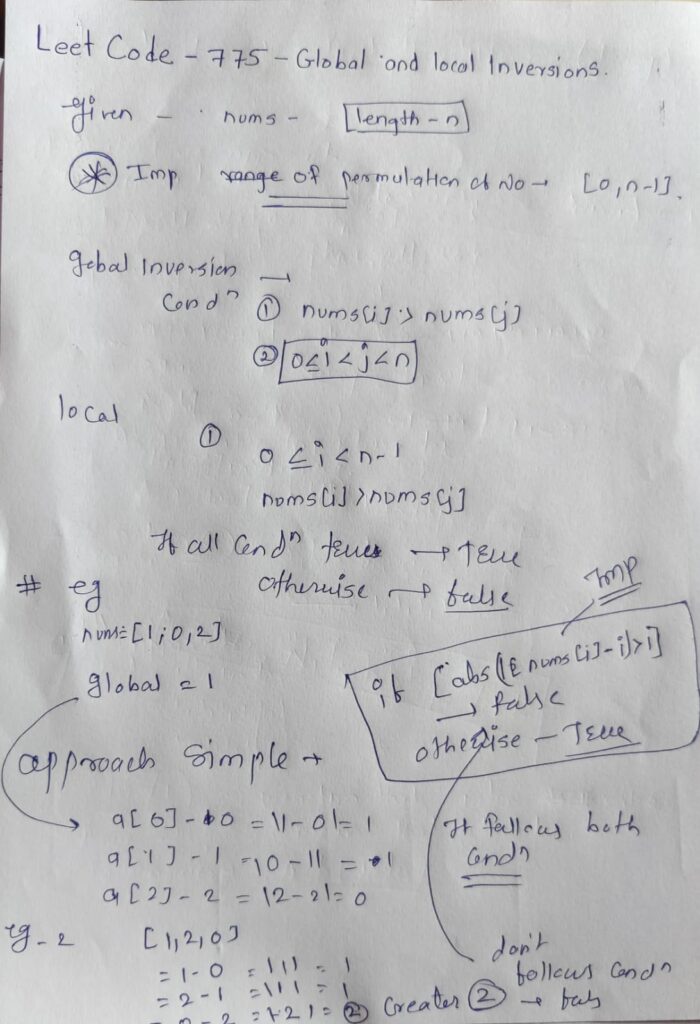 Leet Code - 775 - Global and local Inversions.
given - nums - length - n
Imp range of permulation of No → [0, n-1].
gebal Inversion →
Condn ① nums[i] > nums[j]
② 0≤i<j<n
local
① 0 ≤ i < n-1
nums[i] > nums[j]
If all Condn → True
otherwise → false
# eg
nums=[1,0,2]
global = 1
Imp
if [abs( nums[i]-i)>i]
→ false
otherwise - True
approach simple →
a[0] - 0 = |1-0| = 1
a[1] - 1 = |0-1| = 1
a[2] - 2 = |2-2| = 0
It fallows both
Condn
eg-2 [1,2,0]
= 1-0 = |1| = 1
= 2-1 = |1| = 1
0-2 = |-2| = ② Greater ②
don't
follows Condn
→